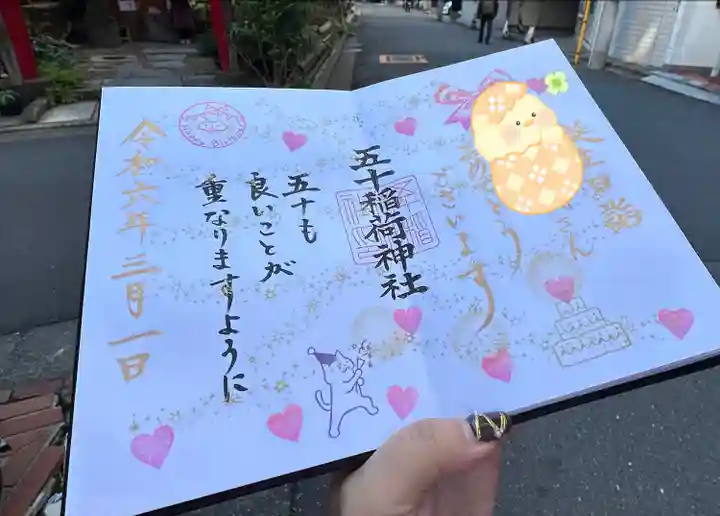 お誕生日
ございます
五十稲荷神社
五十も
良いことが
重なりますように
令和六年三月一日